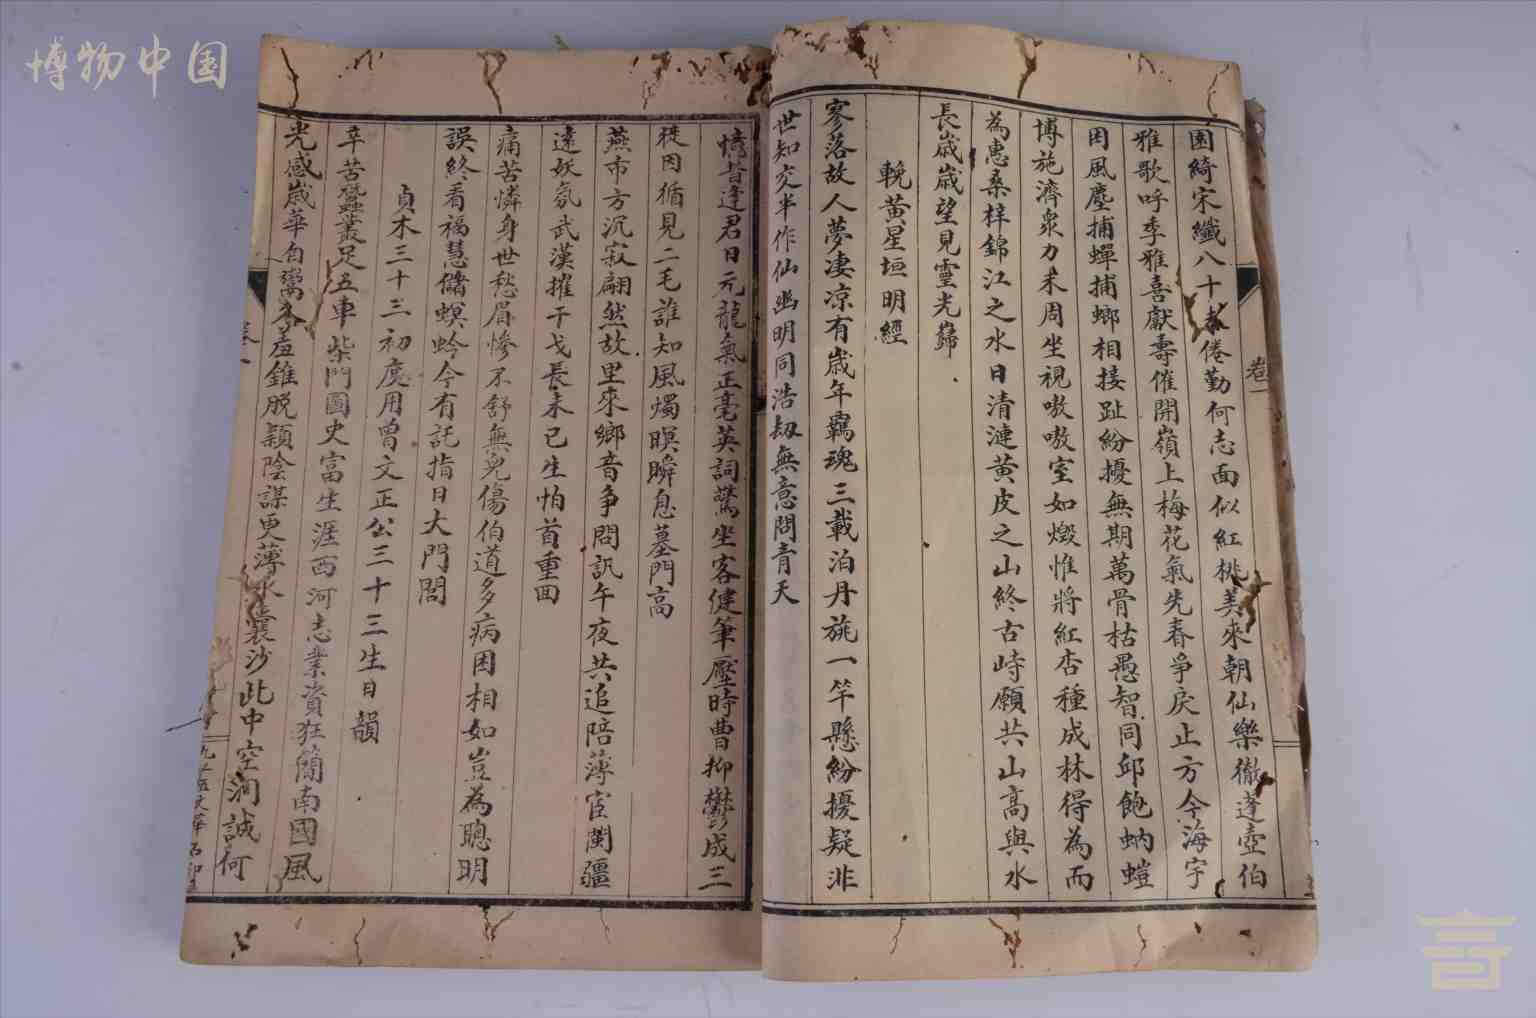 博物中国
園綺宋纖八十春倦勤何志面似紅桃美來朝仙樂徹蓬壺伯
雅歌呼季雅喜獻壽催開嶺上梅花氣先春爭戾止方今海宇
困風塵捕蟬捕螂相接趾紛擾無期萬骨枯愚智同邱飽蚋螘
博施濟泉力未周坐視嗷嗷室如燬惟將紅杏種成林得為而
為惠桑梓錦江之水日清漣黃皮之山終古峙願共山高與水
長歲歲望見靈光巋
輓黃星垣明經
寥落故人夢凄凉有歲年羈魂三載泊丹旐一竿懸紛擾疑非
世知交半作仙幽明同浩劫無意問青天
憶昔逢君日元龍氣正毫英詞驚坐客健筆壓時曹抑鬱成三
徙因循見二毛誰知風燭暝瞬息墓門高
燕市方沉寂翩然故里來鄉音争問訊午夜共追陪薄宦闌疆
遠妖氛武漢摧干戈長未已生怕首重回
痛苦憐身世愁眉慘不舒無兒傷伯道多病困相如豈為聰明
誤終看福慧儲螟蛉今有託指日大門閭
貞木三十三初度用曾文正公三十三生日韻
辛苦蠶叢足五車柴門圖史富生涯西河志業資狂簡南國風
光感歲華自鬻羞錐脫穎陰謀更薄水囊沙此中空洞誠何
卷一